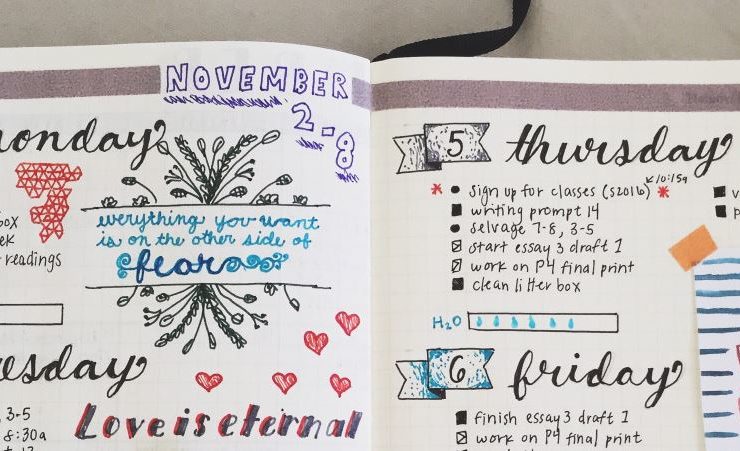 NOVEMBER
2-8
monday
box
ek
readings
everything you want
is on the other side of
fear
uesday
3-5
8:30a
Love is eternal
5 thursday
10:15a
sign up for classes (s2016)
writing prompt 14
selvage 7-8, 3-5
start essay 3 draft 1
work on P4 final print
clean litter box
H₂O
6 friday
finish essay 3 draft 1
work on P4 final print